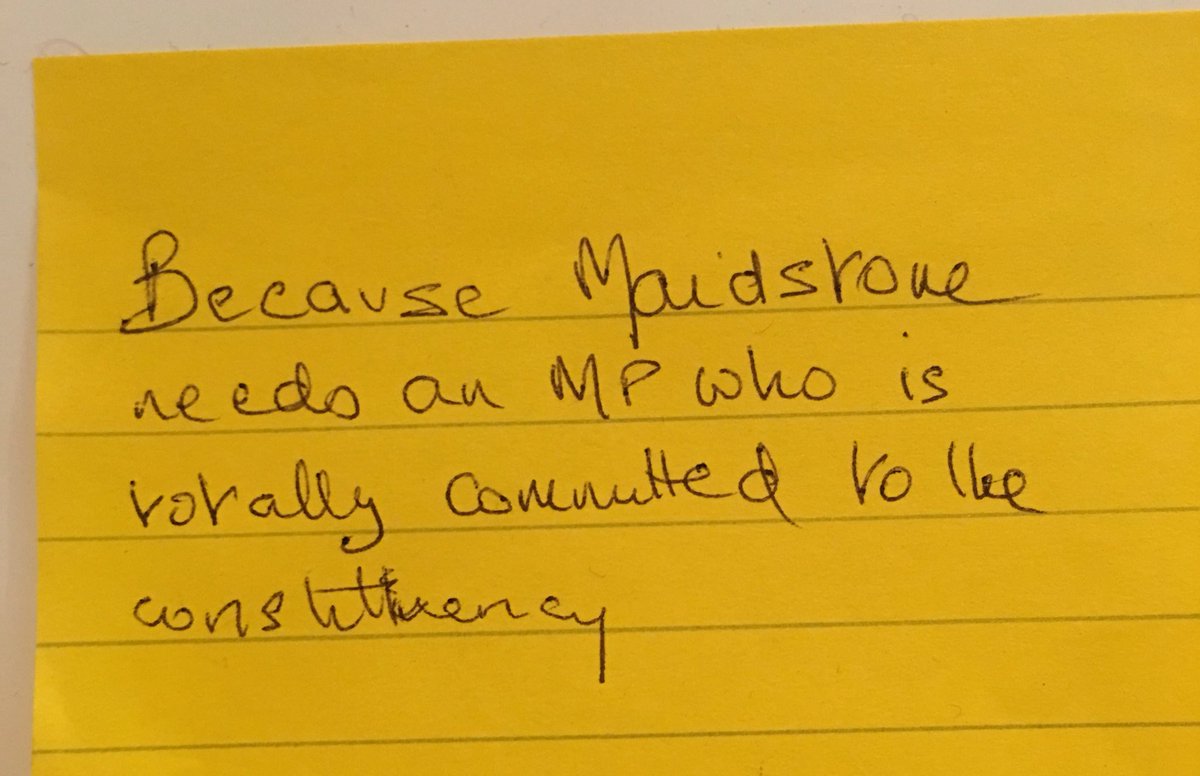 Because Maidstone
needs an MP who is
totally committed to the
constituency